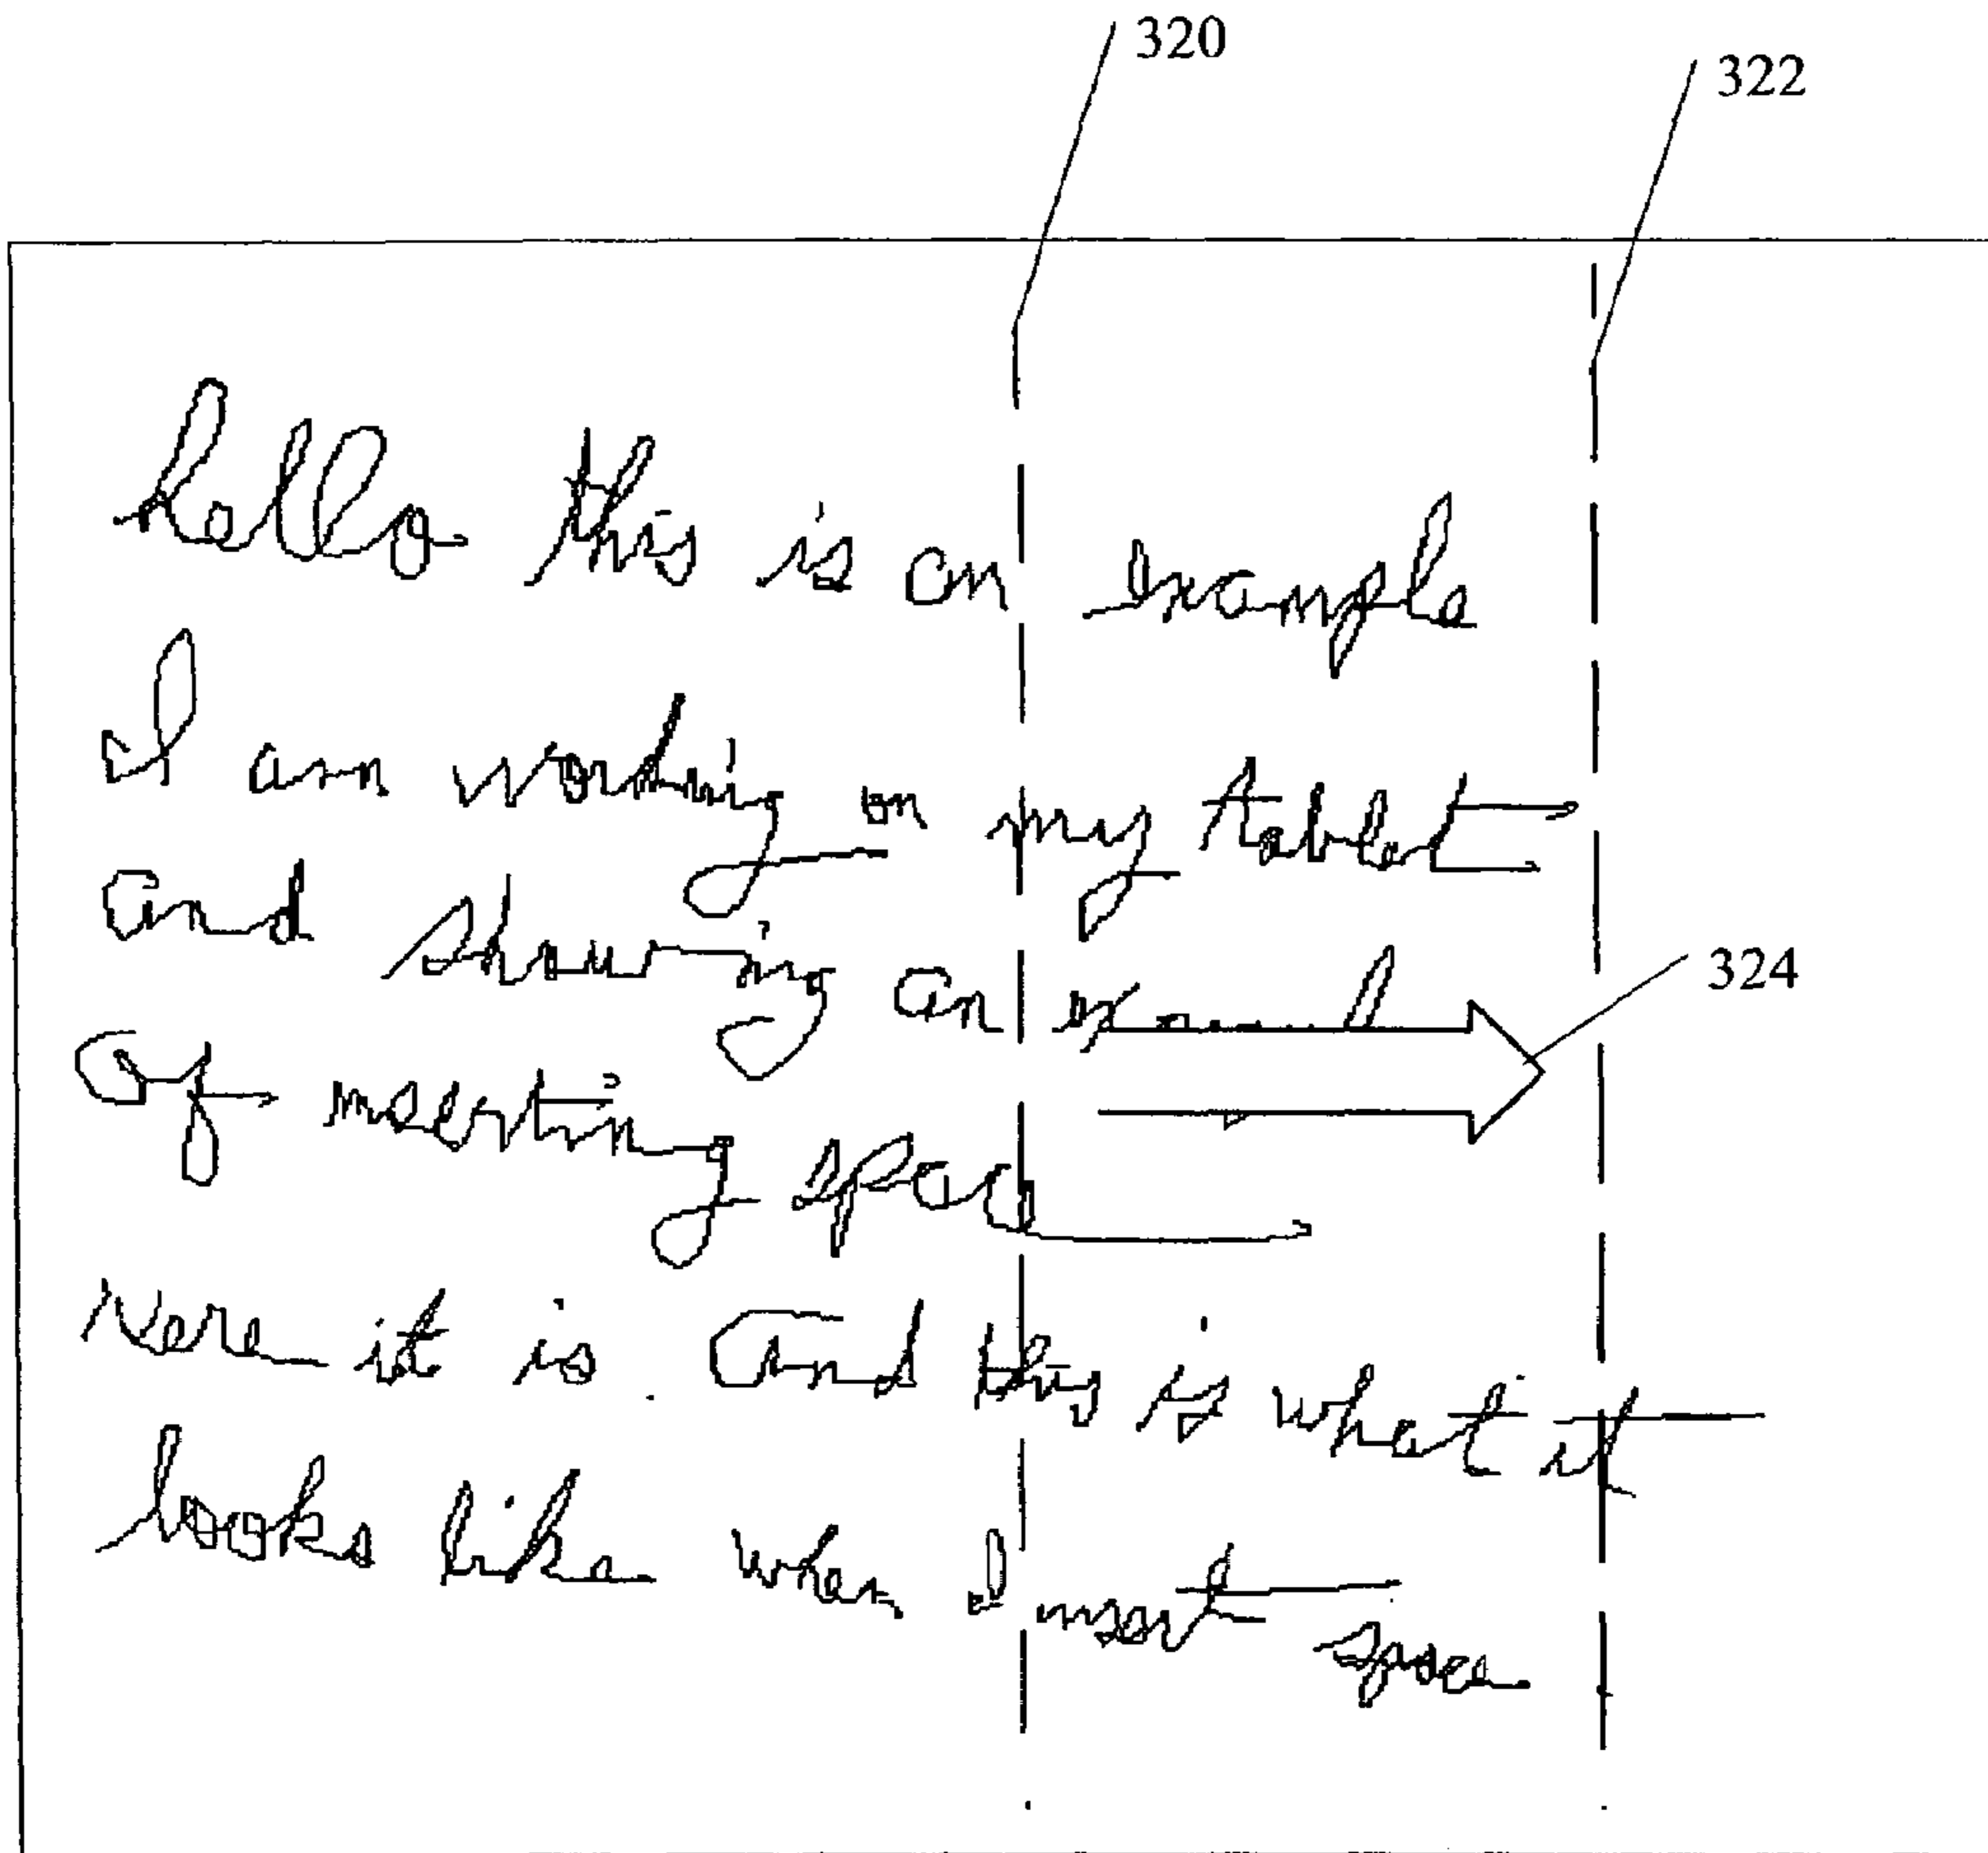 320
322
hello this is an example
I am working on my tablet
and showing an
324
of inserting space
Here it is. And this is what it
looks like when I insert space